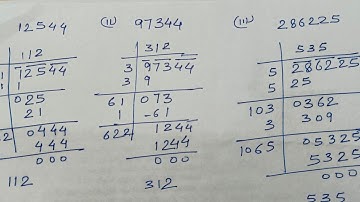 12544
112
1 12544
1 1
025
21
2 0444
444
000
112
(ii) 97344
312
3 97344
3 9
61 073
1 -61
622 1244
1244
000
312
(iii) 286225
535
5 286225
5 25
103 0362
3 309
1065 05325
5325
000
535